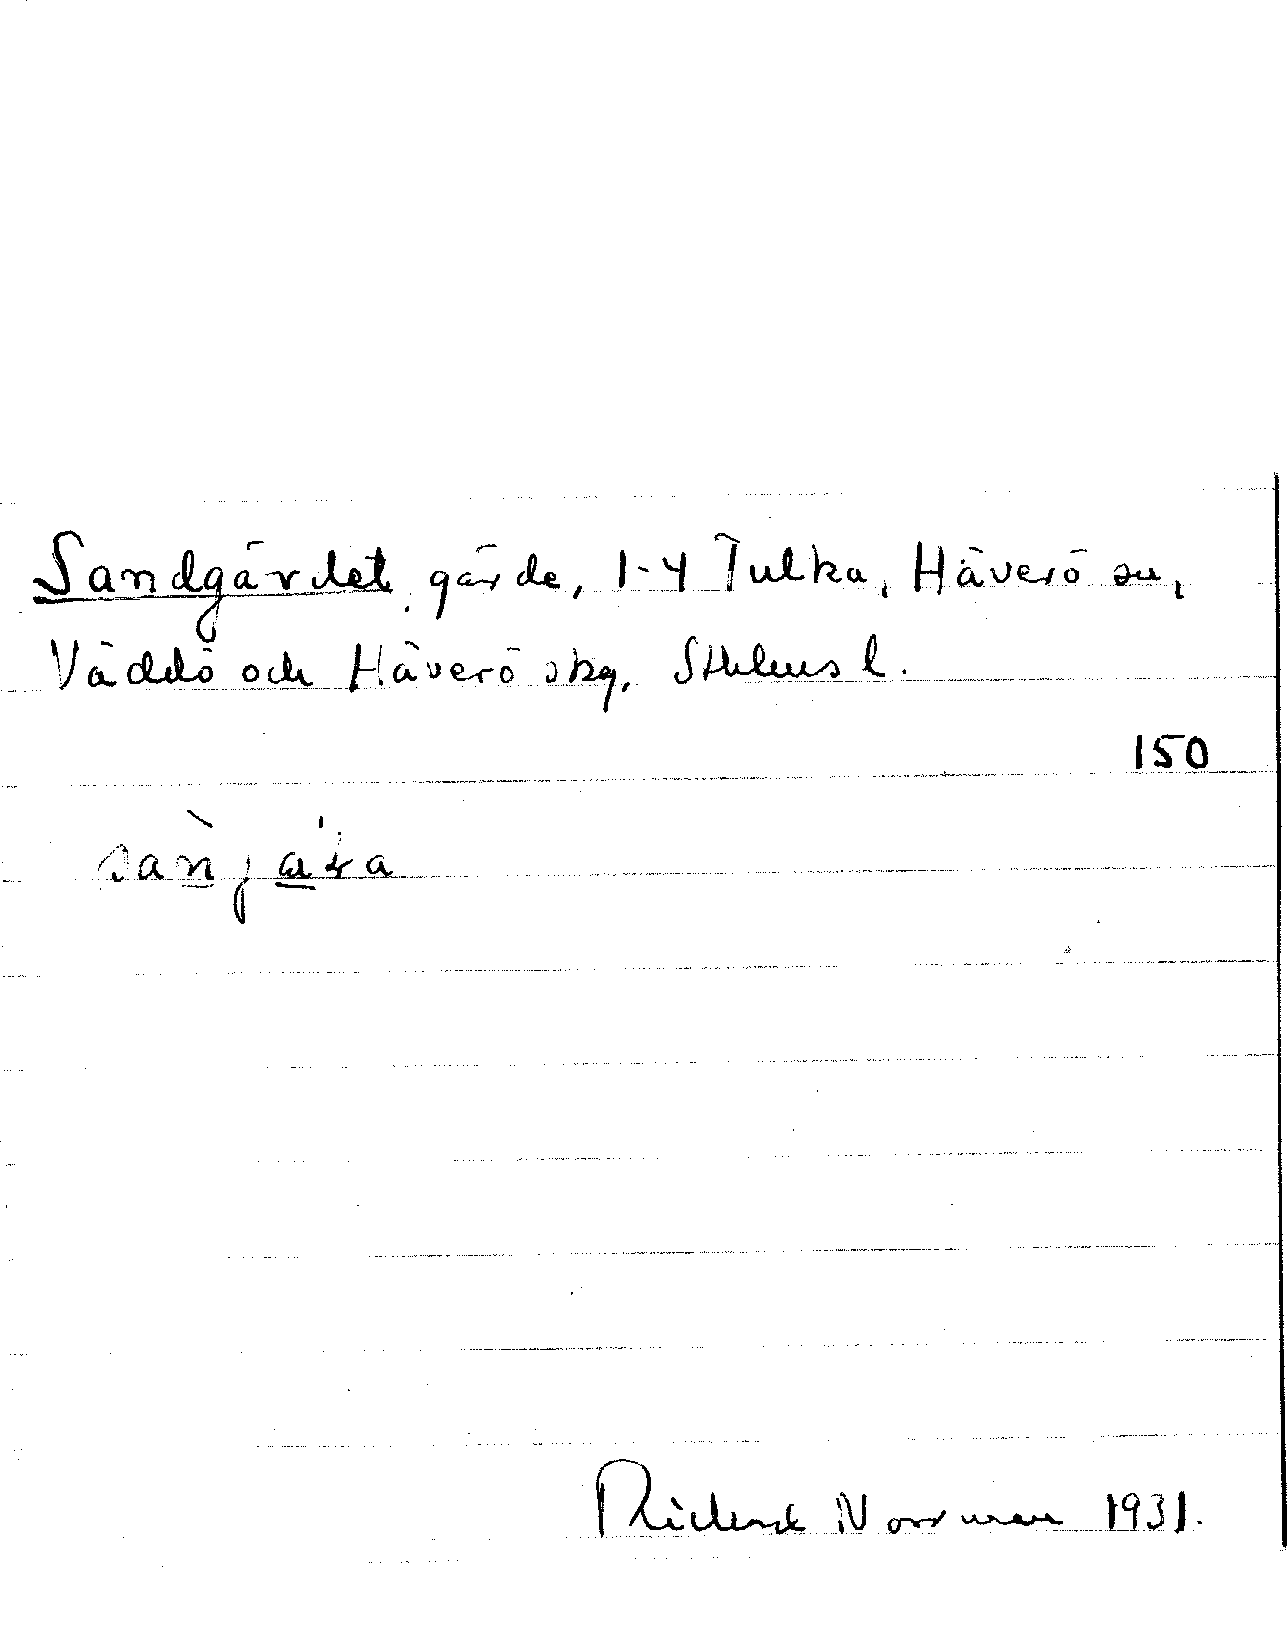 Sandgärdet, gärde, 1-4 Tulka, Häverö sn,
Väddö och Häverö skg, Sthlms l.
150
Rickard Norrman 1931.